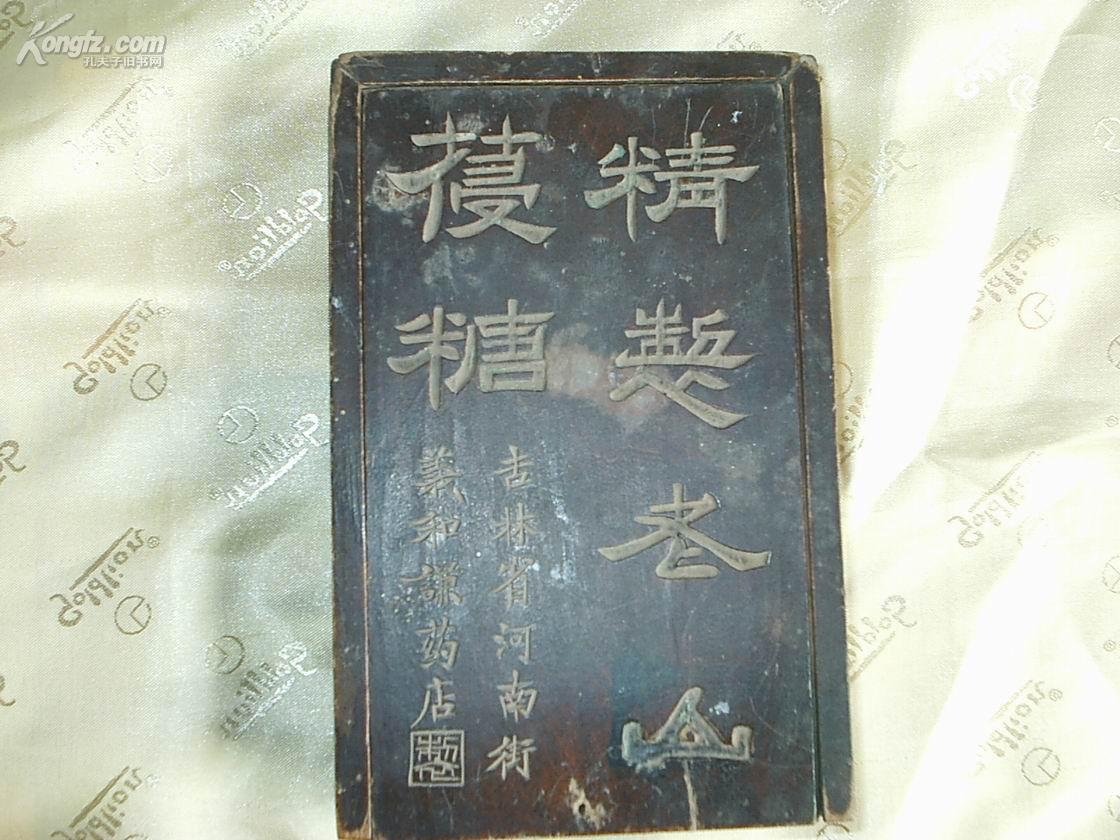 Kongfz.com
孔夫子旧书网
精製老山
葠糖
吉林省河南街
義和謙药店製
Goldlion®